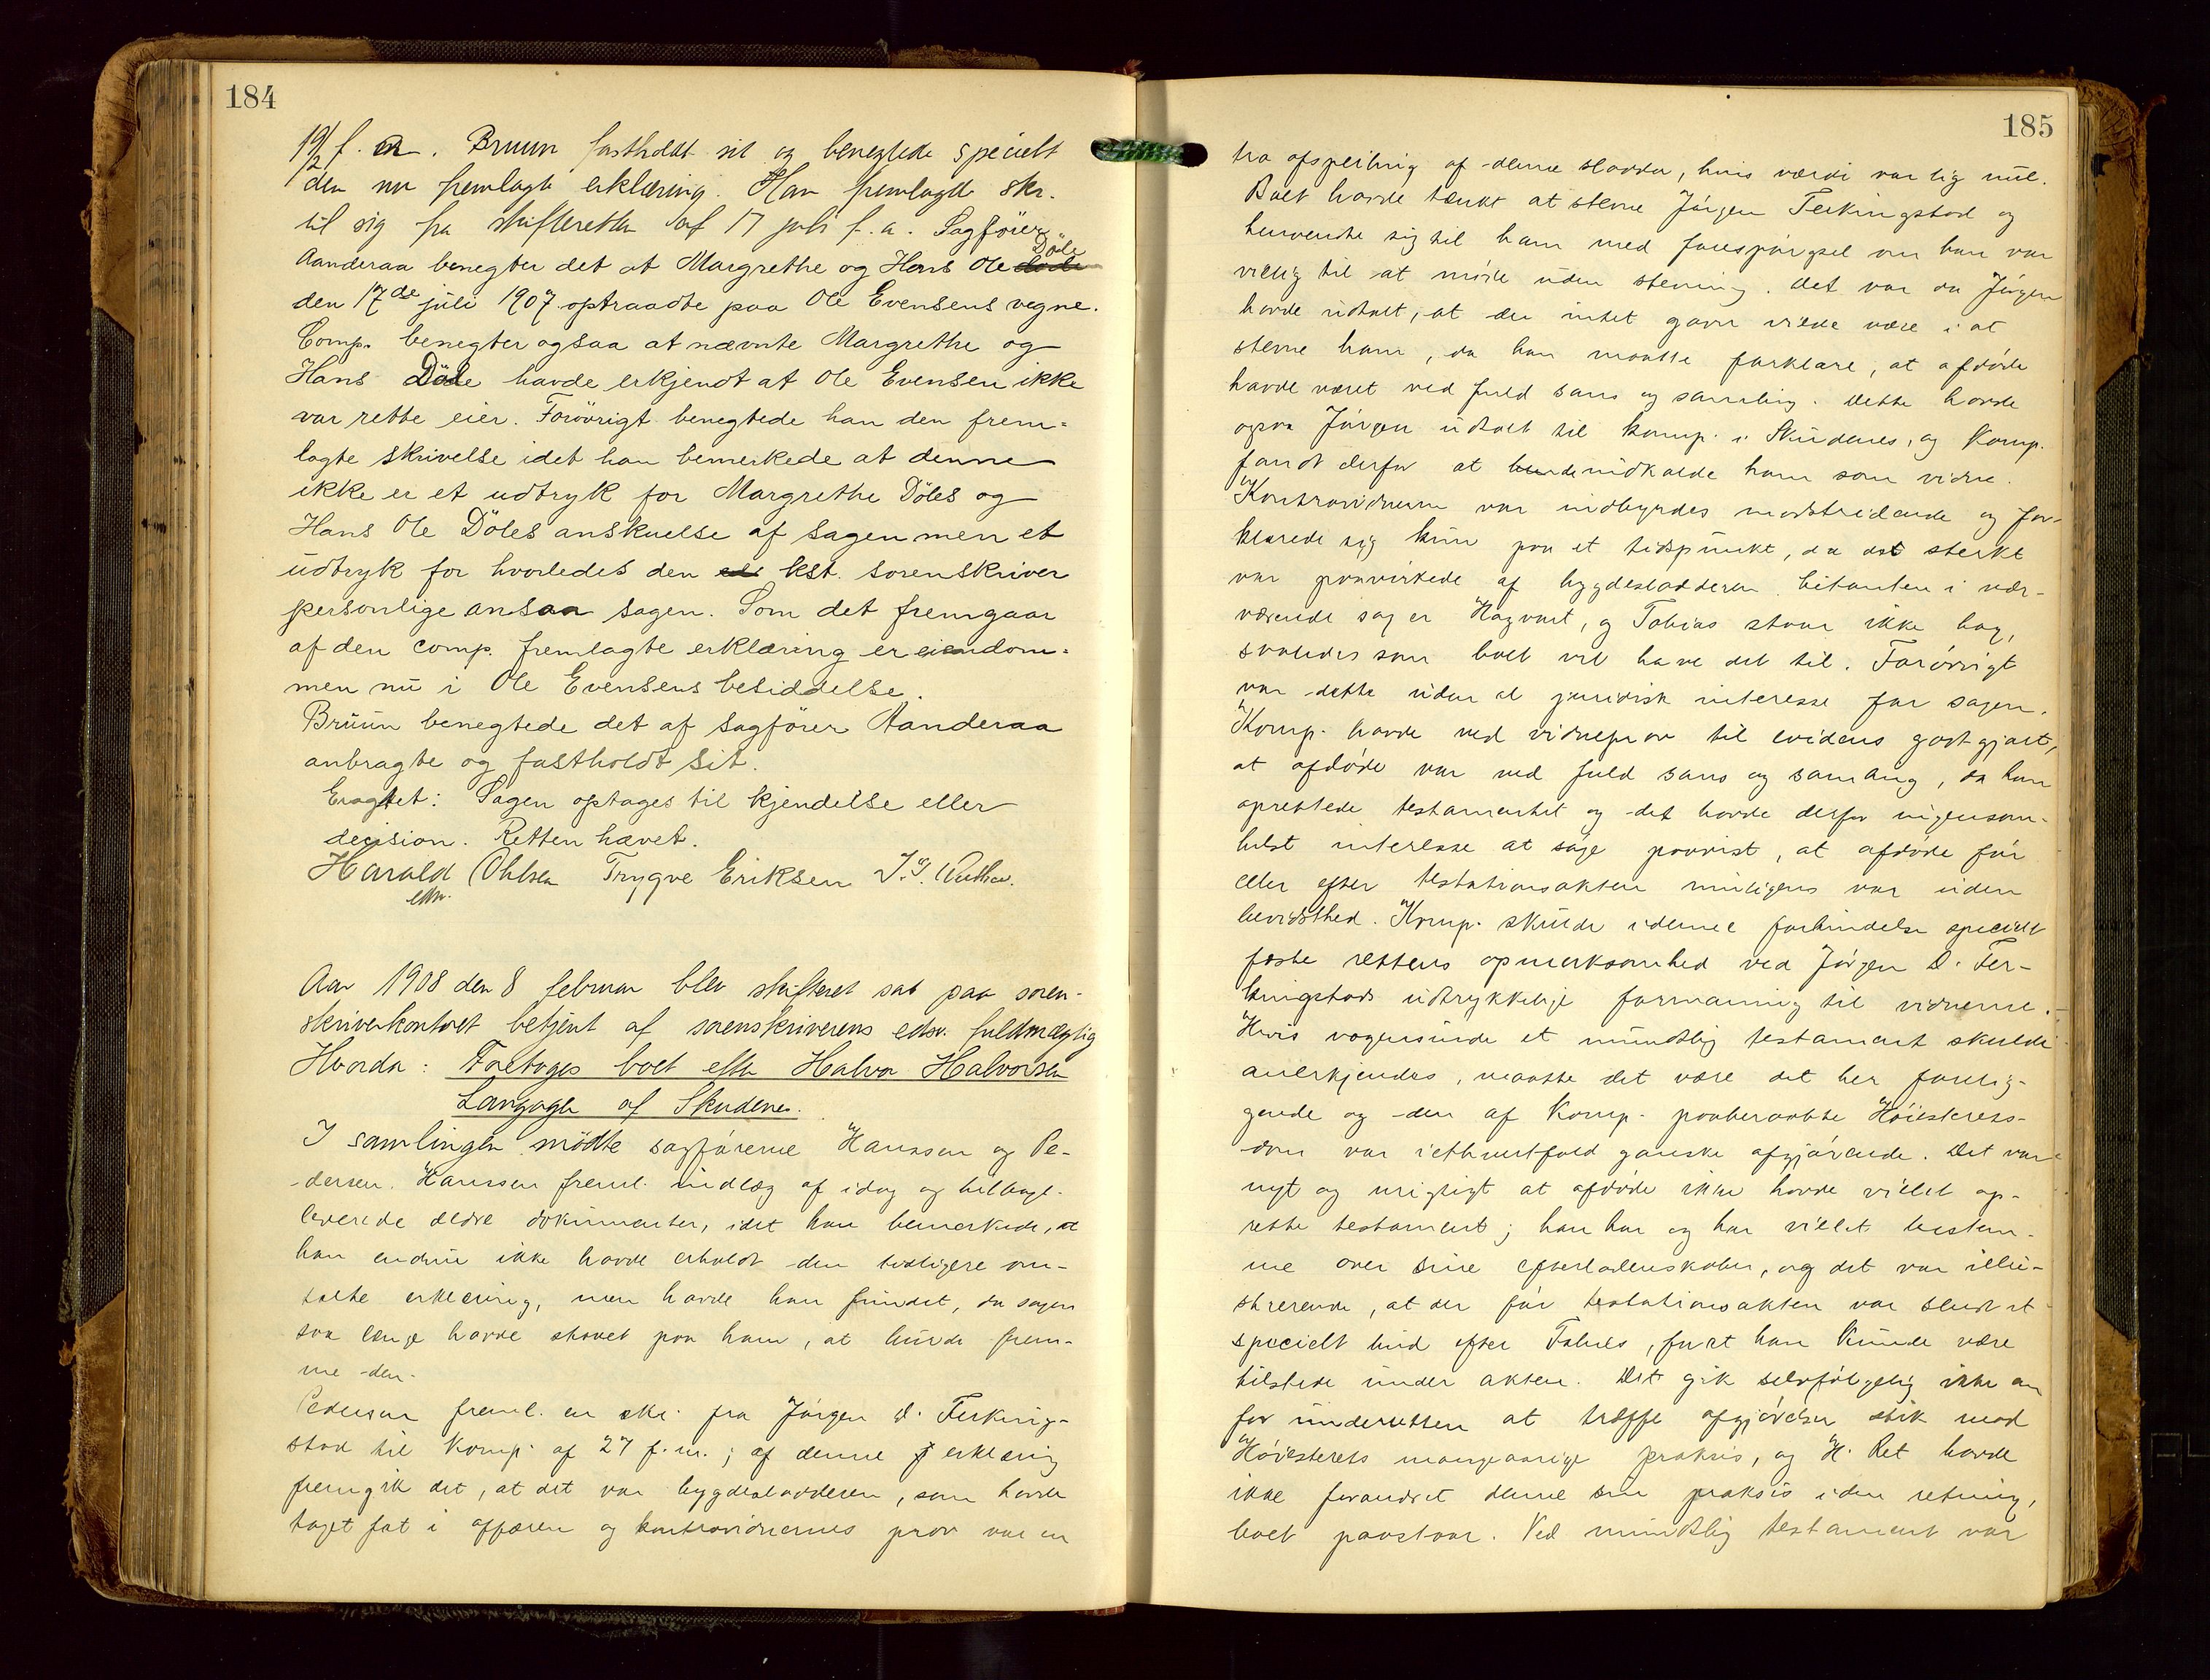 184
19/2 f. m. Bruun fastholdt sit og benegtede specielt
den nu fremlagte erklæring. Han fremlagde skr.
til sig fra skifteretten af 17 juli f. a. Sagfører
Aanderaa benegter det at Margrethe og Hans Ole Döle
den 17de juli 1907 optraadte paa Ole Evensens vegne.
Comp. benegter ogsaa at nævnte Margrethe og
Hans Döle havde erkjendt at Ole Evensen ikke
var rette eier. Forövrigt benegtede han den frem-
lagte skrivelse idet han bemerkede at denne
ikke er et udtryk for Margrethe Döles og
Hans Ole Döles anskuelse af sagen men et
udtryk for hvorledes den kst. sorenskriver
personlige ansaa sagen. Som det fremgaar
af den comp. fremlagte erklæring er eiendom-
men nu i Ole Evensens besiddelse.
Bruun benegtede det af sagfører Aanderaa
anbragte og fastholdt sit.
Eragtet: Sagen optages til kjendelse eller
decision. Retten hævet.
Harald Ohlsen Trygve Eriksen J. G.
Aar 1908 den 8 februar blev skifteret sat paa soren-
skriverkontoret betjent af sorenskriverens edsv. fuldmægtig
Hvorda: Foretoges boet efter Halvor Halvorsen
Langager af Skudenes.
I samlingen mödte sagförerne Hanssen og Pe-
dersen. Hanssen freml. indlæg af idag og tilbage-
leverede ældre dokumenter, idet han bemerkede, at
han endnu ikke havde erholdt den tidligere om-
talte erklæring, men havde han fundet, da sagen
saa længe havde staaet paa ham, at burde frem-
me den.
Pedersen freml. en skr. fra Jörgen D. Ferking-
stad til Komp. af 27 f. m.; af denne erklæring
fremgik det, at det var bygdesladderen, som havde
taget fat i affæren og kontravidnernes prov var en
185
tro afspeiling af denne sladder, hvis værdi var lig nul.
Boet havde tænkt at stevne Jörgen Ferkingstad og
henvendte sig til ham med forespörgsel om han var
villig til at möde uden stevning. Det var da Jörgen
havde udtalt, at der intet gavn vilde være i at
stevne ham, da han maatte forklare, at afdöde
havde været ved fuld sans og samling. Dette havde
ogsaa Jörgen udtalt til Komp. i Skudenes, og Komp.
fandt derfor at indkalde ham som vidne.
Kontravidnerne var indbyrdes modstridende og for-
klarede sig kun paa et tidspunkt, da det sterkt
var paavirkede af bygdesladderen. Citanten i nær-
værende sag er Hagvart, og Tobias staar ikke bag,
saaledes som boet vil have det til. Forövrigt
var dette uden al juridisk interesse for sagen.
Komp. havde ved vidneprov til evidens godtgjort,
at afdöde var ved fuld sans og samling, da han
oprettede testamentet og det havde derfor ingensom-
helst interesse at söge paavist, at afdöde för
eller efter testationsakten muligens var uden
bevidsthed. Komp. skulde i denne forbindelse specielt
fæste rettens opmerksomhed ved Jörgen D. Fer-
kingstads udtrykkelige formaning til vidnerne.
Hvis nogensinde et mundtlig testament skulde
anerkjendes, maatte det være det her forelig-
gende og den af Komp. paaberaabte Höiesterets-
dom var i ethvertfald ganske afgjörende. Det var
nyt og urigtigt at afdöde ikke havde villet op-
rette testament; han har og har villet bestem-
me over sine efterladenskaber, og det var illu-
strerende, at der för testationsakten var sendt et
specielt bud efter Tobias, for at han kunde være
tilstede under akten. Det gik selvfölgelig ikke an
for underretten at træffe afgjörelser stik mod
Höiesterets mangeaarige praksis, og H. Ret havde
ikke forandret denne sin praksis i den retning,
boet paastaar. Ved mundtlig testament var